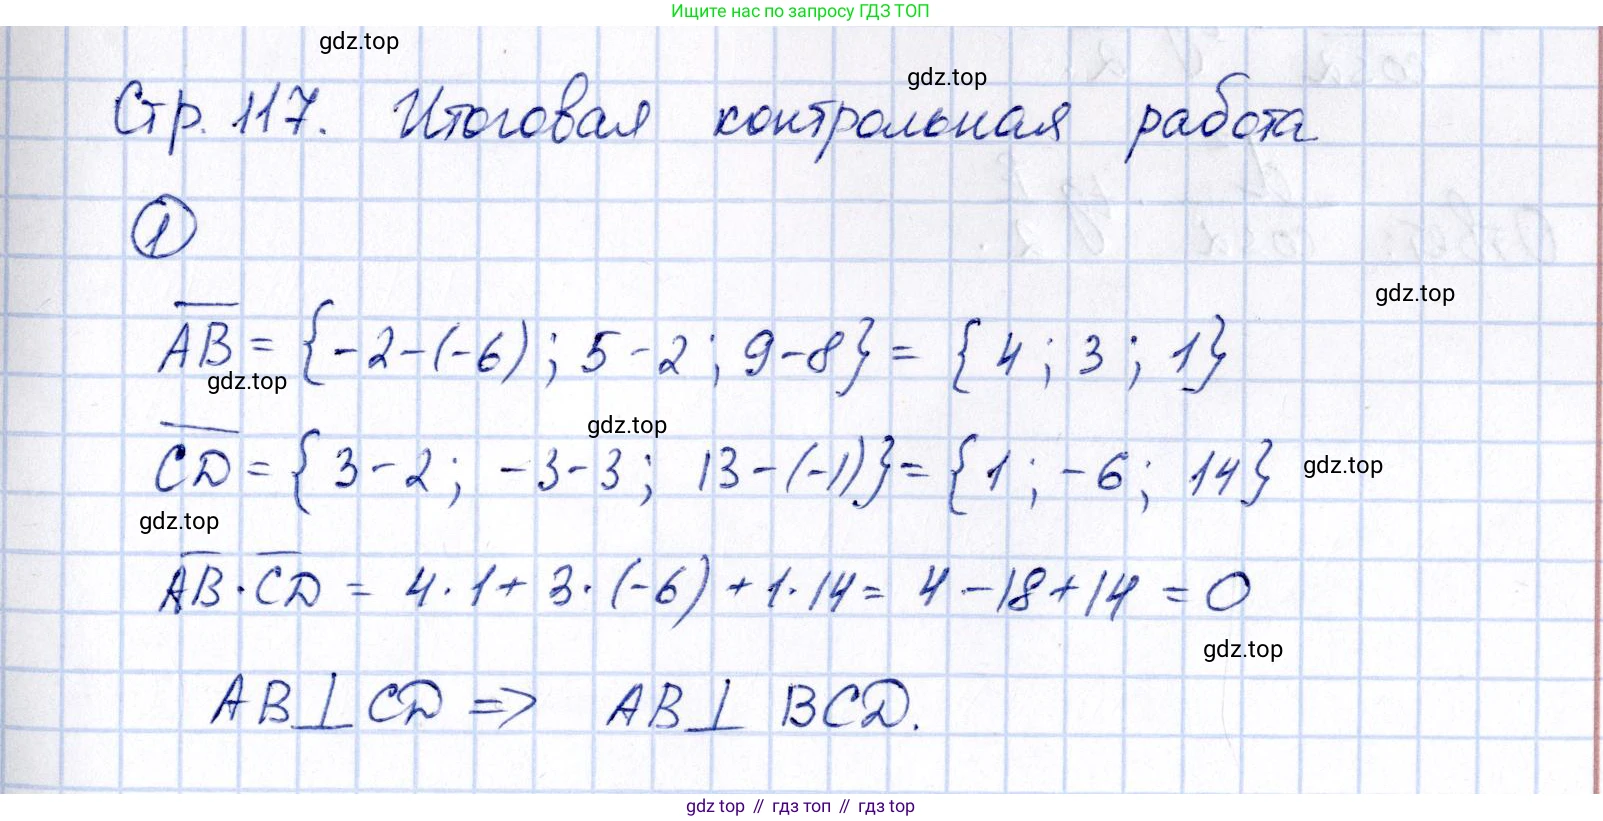 Ищите нас по запросу ГДЗ ТОП
gdz.top
gdz.top
Стр. 117. Итоговая контрольная работа
1
gdz.top
AB = {-2-(-6); 5-2; 9-8} = {4; 3; 1}
gdz.top
gdz.top
CD = {3-2; -3-3; 13-(-1)} = {1; -6; 14}
gdz.top
gdz.top
AB · CD = 4·1 + 3·(-6) + 1·14 = 4-18+14 = 0
gdz.top
AB⊥CD => AB⊥ BCD.
gdz top // гдз топ // gdz top